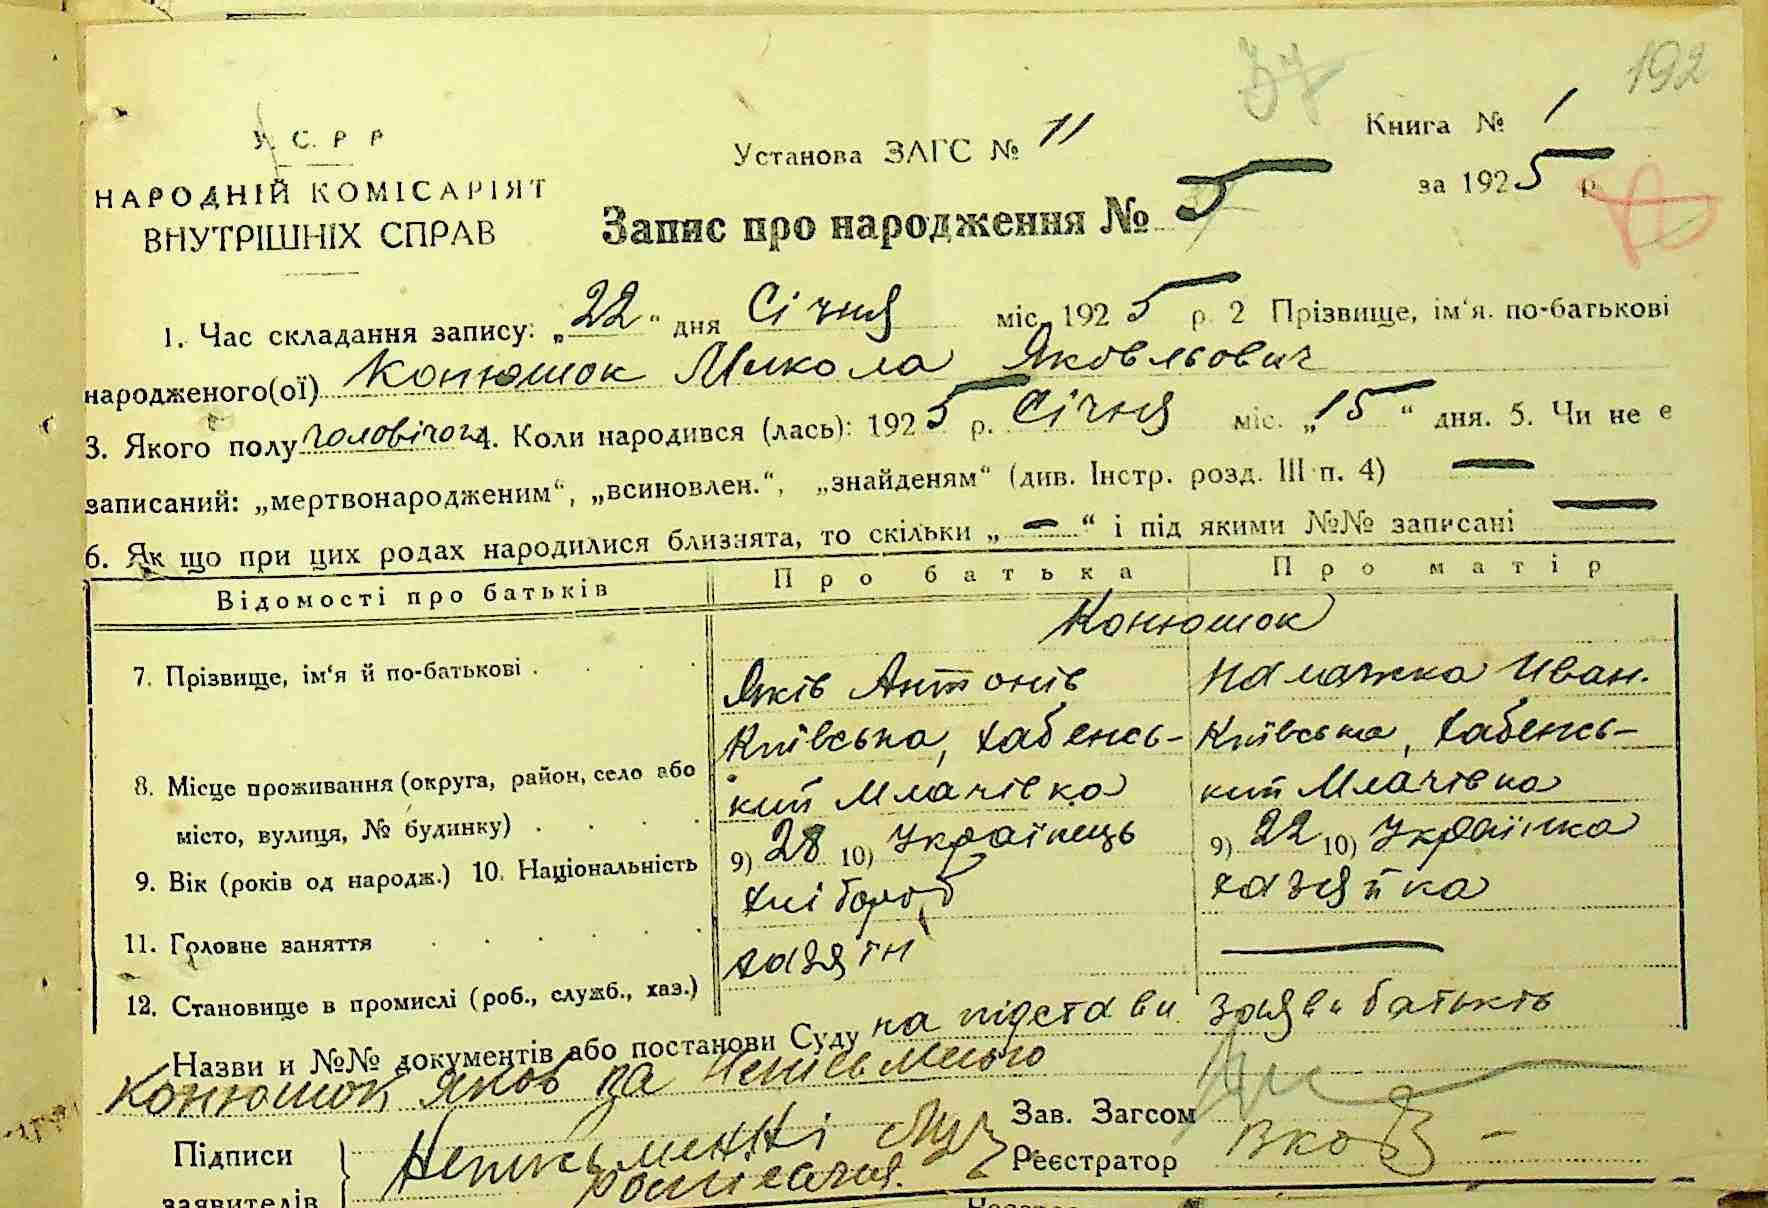 192
У. С. Р. Р.
Установа ЗАГС № 11
Книга № 1
НАРОДНІЙ КОМІСАРІЯТ
ВНУТРІШНІХ СПРАВ
за 1925 р.
Запис про народження № 5
1. Час складання запису: „22“ дня Січня міс. 1925 р. 2 Прізвище, ім‘я. по-батькові
народженого(ої) Конюшок Микола Яковльович
3. Якого полу чоловічого 4. Коли народився (лась): 1925 р. Січня міс. „15“ дня. 5. Чи не е
записаний: „мертвонародженим“, „всиновлен.“, „знайденям“ (див. Інстр. розд. III п. 4) —
6. Як що при цих родах народилися близнята, то скільки „—“ і під якими №№ записані —
Відомості про батьків Про батька Про матір
Конюшок
7. Прізвище, ім‘я й по-батькові . Яків Антонів Иван.
Київська, Хабенсь- Київська, Хабенсь-
8. Місце проживання (округа, район, село або кий Млачівка кий Млачівка
місто, вулиця, № будинку)
9. Вік (років од народж.) 10. Національність 9) 28 10) Українець 9) 22 10) Українка
11. Головне заняття хлібороб хазяйка
12. Становище в промислі (роб., служб., хаз.) хазяїн —
Назви и №№ документів або постанови Суду на підстави заяви батьків
Конюшок Яков
Підписи
заявителів
Неписьменні
росписался.
Зав. Загсом
Реєстратор